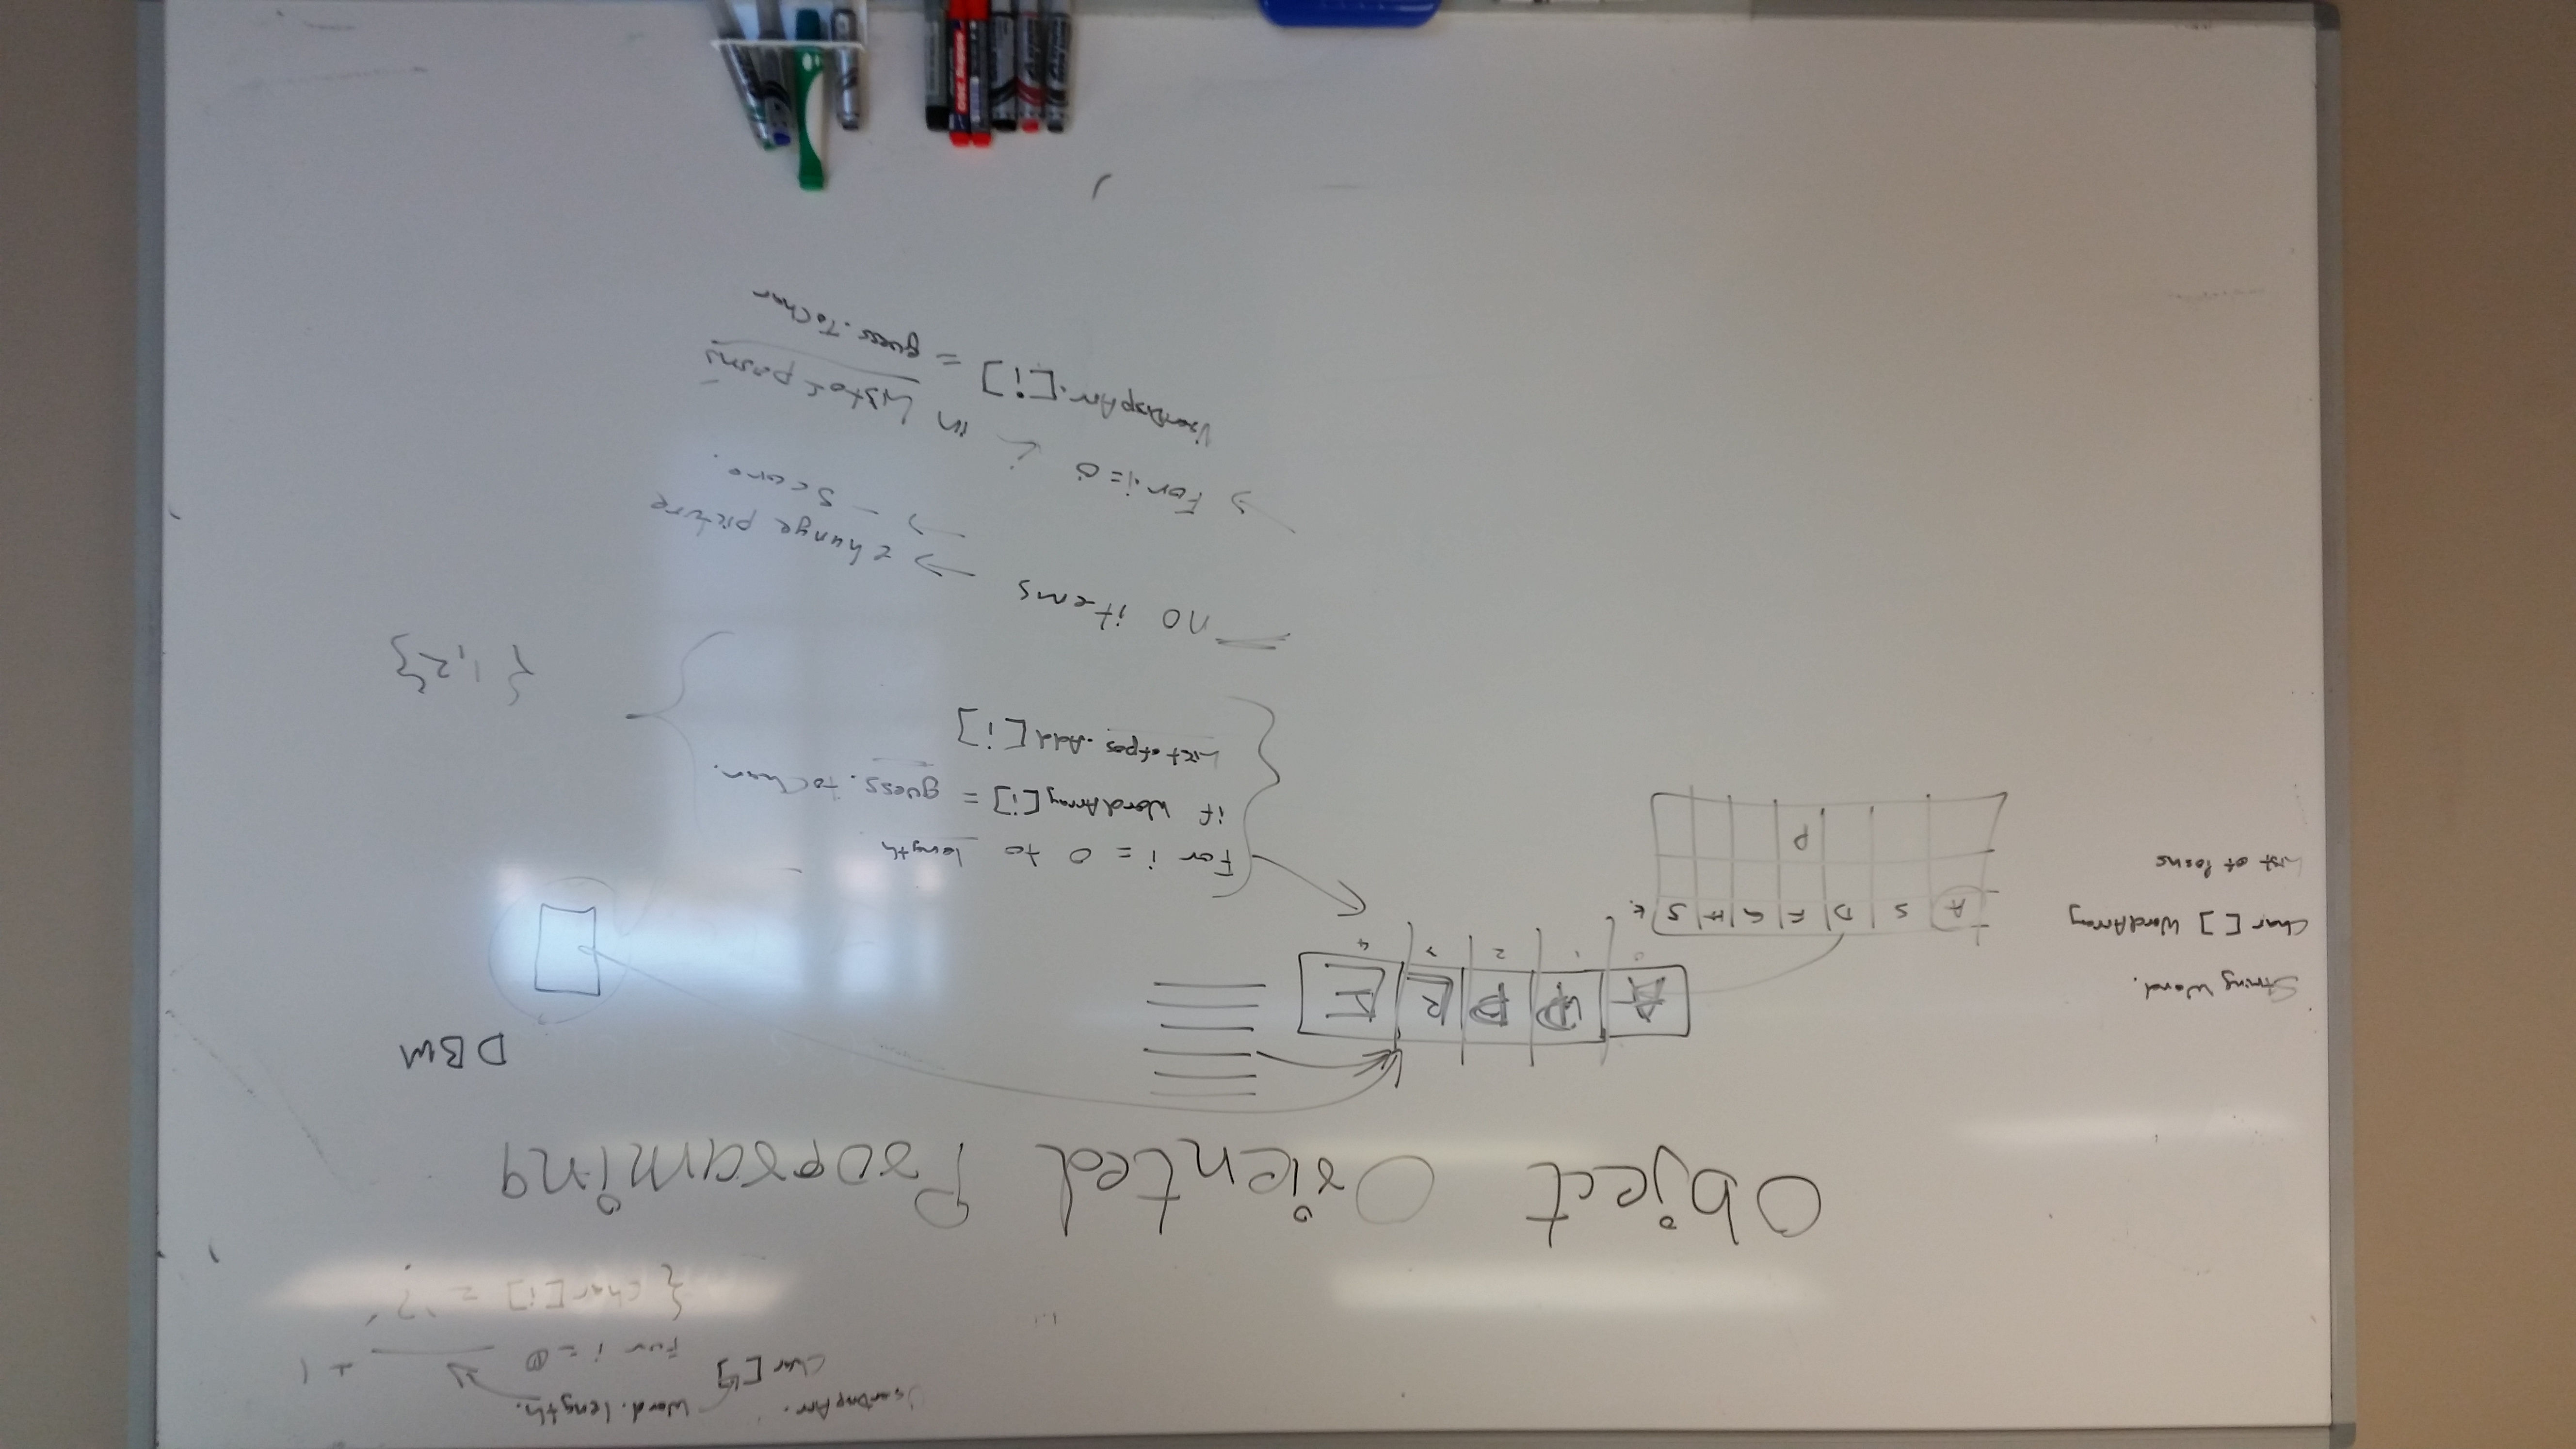 UserDispArr. Word.length.
Char [ ]
For i = 0 ______ + 1
{ char[i] = '?'
Object Oriented Programing
DBM
A P P L E
0 1 2 3 4
String Word.
Char [ ] WordArray
List of Posns
A S D F G H J K.
P
For i = 0 to length
if WordArray[i] = guess.toChar.
Listofpos.Add[i]
{1,2}
no items → change picture
→ - Score.
→ For i=0 i in Listof posns
UserDispArr.[i] = guess.ToChar